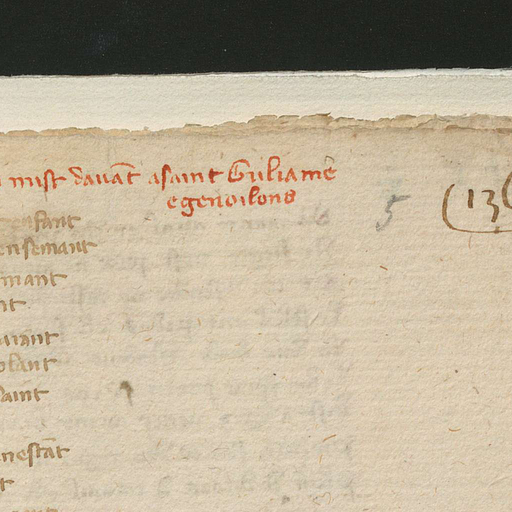 mist dauāt asaint Guliame
egenoilons
5 (13
enfant
ensemant
mant
nt
olant
saint
nestāt
t